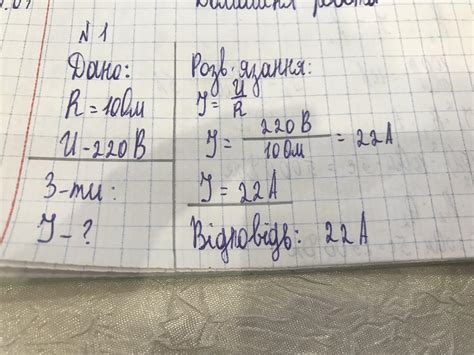 Домашня робота
№1
Дано:
R = 10 Ом
U - 220 В
З-ти:
І - ?
Розв'язання:
І = U/R
І = 220 В / 10 Ом = 22 А
І = 22 А
Відповідь: 22 А